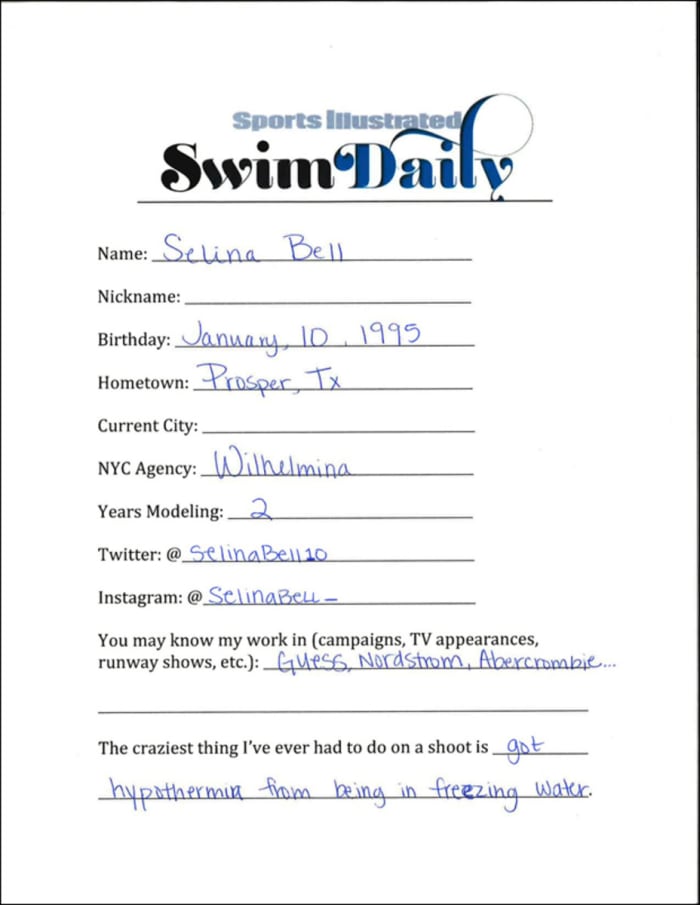 Sports Illustrated
SwimDaily
Name: Selina Bell
Nickname:
Birthday: January, 10, 1995
Hometown: Prosper, Tx
Current City:
NYC Agency: Wilhelmina
Years Modeling: 2
Twitter: @ SelinaBell10
Instagram: @ SelinaBell_
You may know my work in (campaigns, TV appearances,
runway shows, etc.): Guess, Nordstrom, Abercrombie...
The craziest thing I've ever had to do on a shoot is got
hypothermia from being in freezing water.